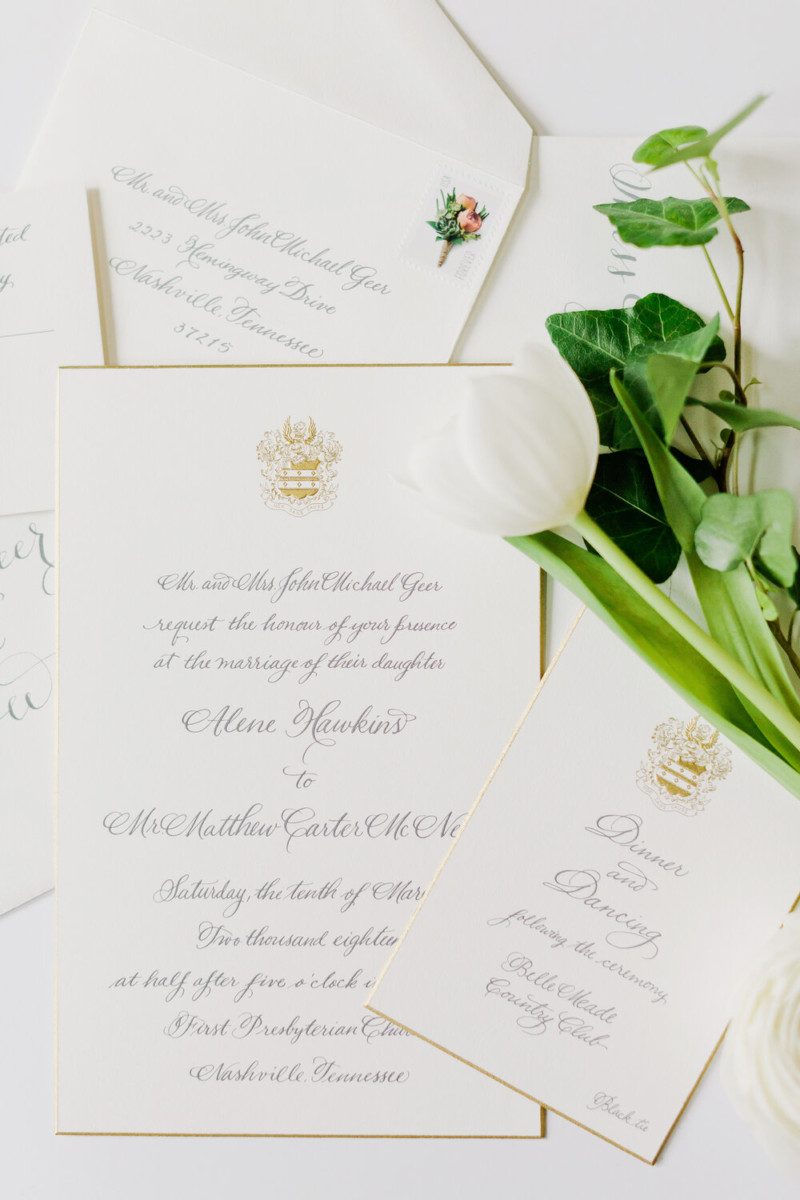 Mr. and Mrs. John Michael Geer
2223 Hemingway Drive
Nashville, Tennessee
37215
Mr. and Mrs. John Michael Geer
request the honour of your presence
at the marriage of their daughter
Alene Hawkins
to
Mr Matthew Carter Mc Ne
Saturday, the tenth of Mar
Two thousand eighteen
at half after five o'clock
First Presbyterian Chur
Nashville, Tennessee
Dinner
and
Dancing
following the ceremony
Belle Meade
Country Club
Black tie